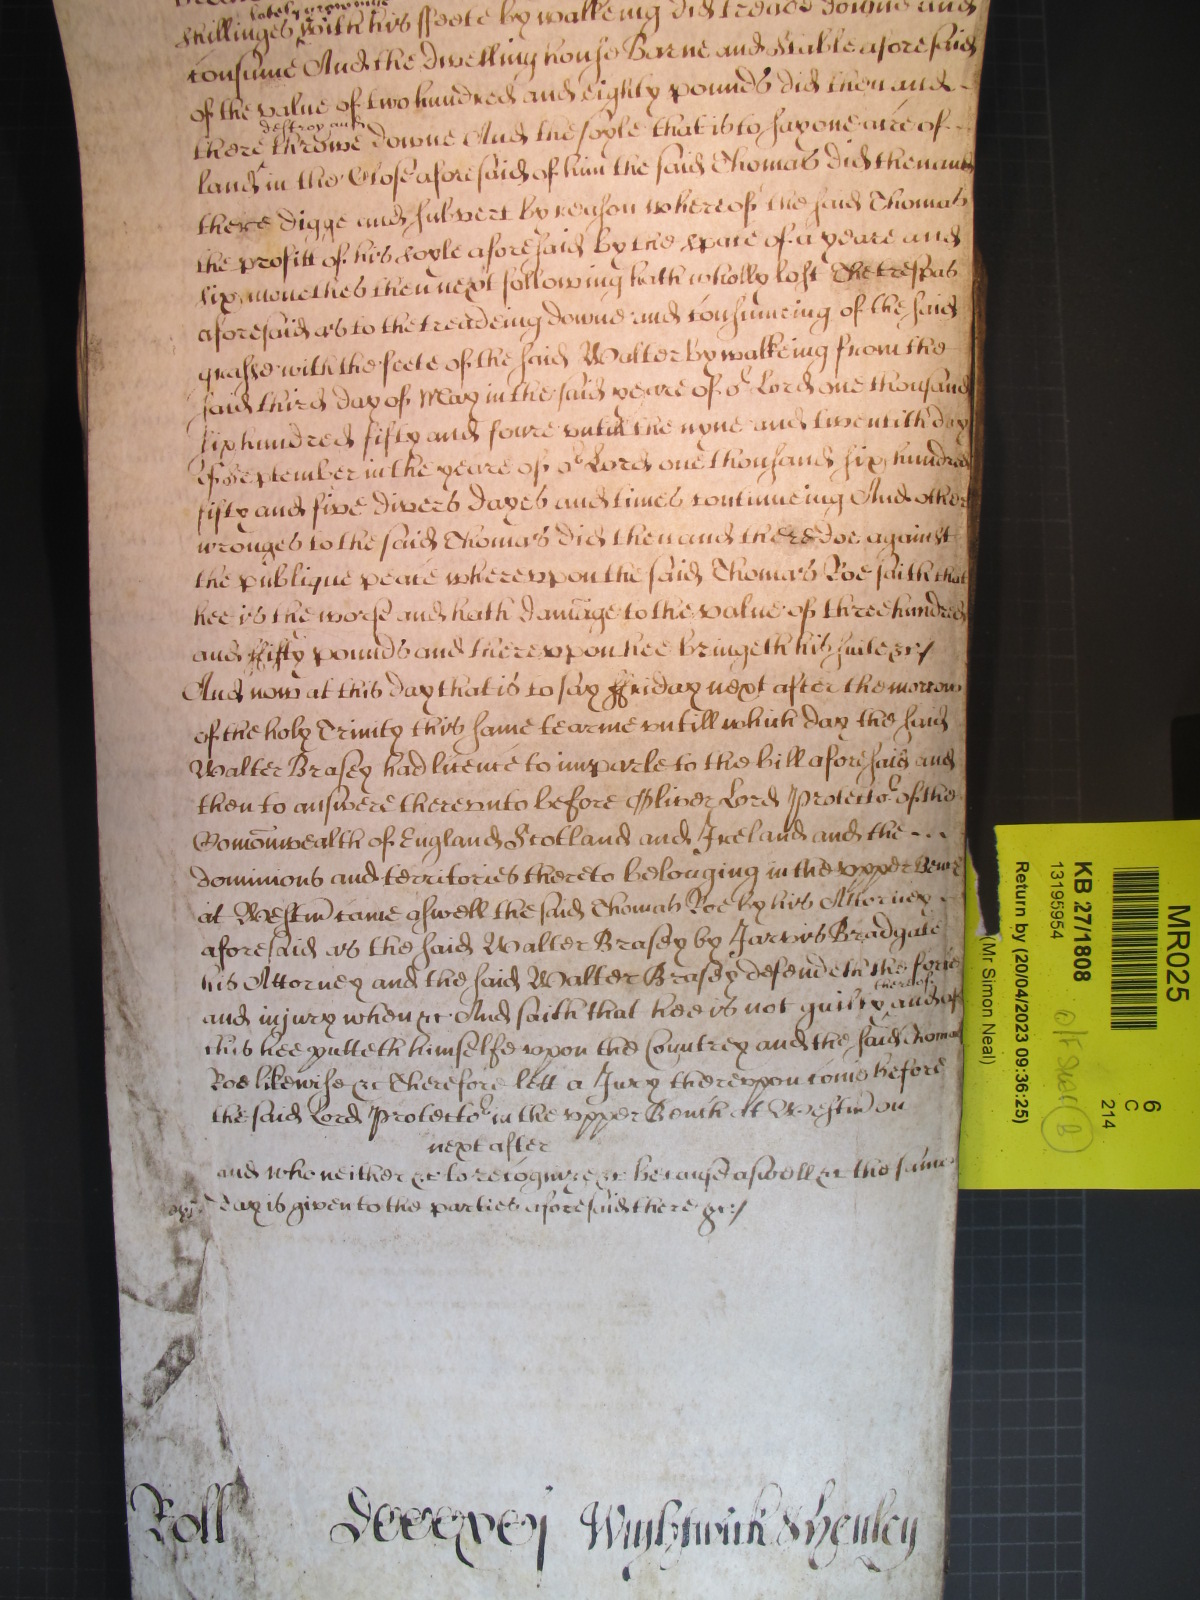 lately growinge
shillinges with his ffeete by walkeing did treade downe and
consume And the dwelling house Barne and Stable aforesaid
of the value of two hundred and eighty pounds did then and
destroy and
there throwe downe And the soyle that is to say one acre of
land in the Close aforesaid of him the said Thomas did then and
there digge and subvert by reason whereof the said Thomas
the profitt of his soyle aforesaid by the space of a yeare and
six monethes then next following hath wholly lost The trespas
aforesaid as to the treadeing downe and consumeing of the said
grasse with the feete of the said Walter by walkeing from the
said third day of May in the said yeare of or Lord one thousand
six hundred fifty and foure untill the nyne and twentith day
of September in the yeare of or Lord one thousand six hundred
fifty and five divers dayes and times continueing And other
wronges to the said Thomas did then and there doe against
the publique peace whereupon the said Thomas Roe saith that
hee is the worse and hath damage to the value of three hundred
and ffifty pounds and thereupon hee bringeth his suite &c:/
And now at this day that is to say ffriday next after the morrow
of the holy Trinity this same tearme untill which day the said
Walter Brasey had licence to imparle to the bill aforesaid and
then to answere thereunto before Oliver Lord Protector of the
Comonwealth of England Scotland and Ireland and the
dominions and territories thereto belonging in the upper Bench
at Westm came aswell the said Thomas Roe by his Attorney
aforesaid as the said Walter Brasey by Jarvis Bradgate
his Attorney and the said Walter Brasey defendeth the force
thereof
and injury when &c And saith that hee is not guilty and of
this hee putteth himselfe upon the Countrey and the said Thomas
Roe likewise &c Therefore lett a Jury thereuppon come before
the said Lord Protector in the upper Bench att Westm on
next after
and who neither &c to recognize &c because aswell &c the same
day is given to the parties aforesaid there &c:/
Roll Wightwick & Henley
MR025
6
C
214
KB 27/1808
13195954
O/F Shelf B
Return by (20/04/2023 09:36:25)
(Mr Simon Neal)